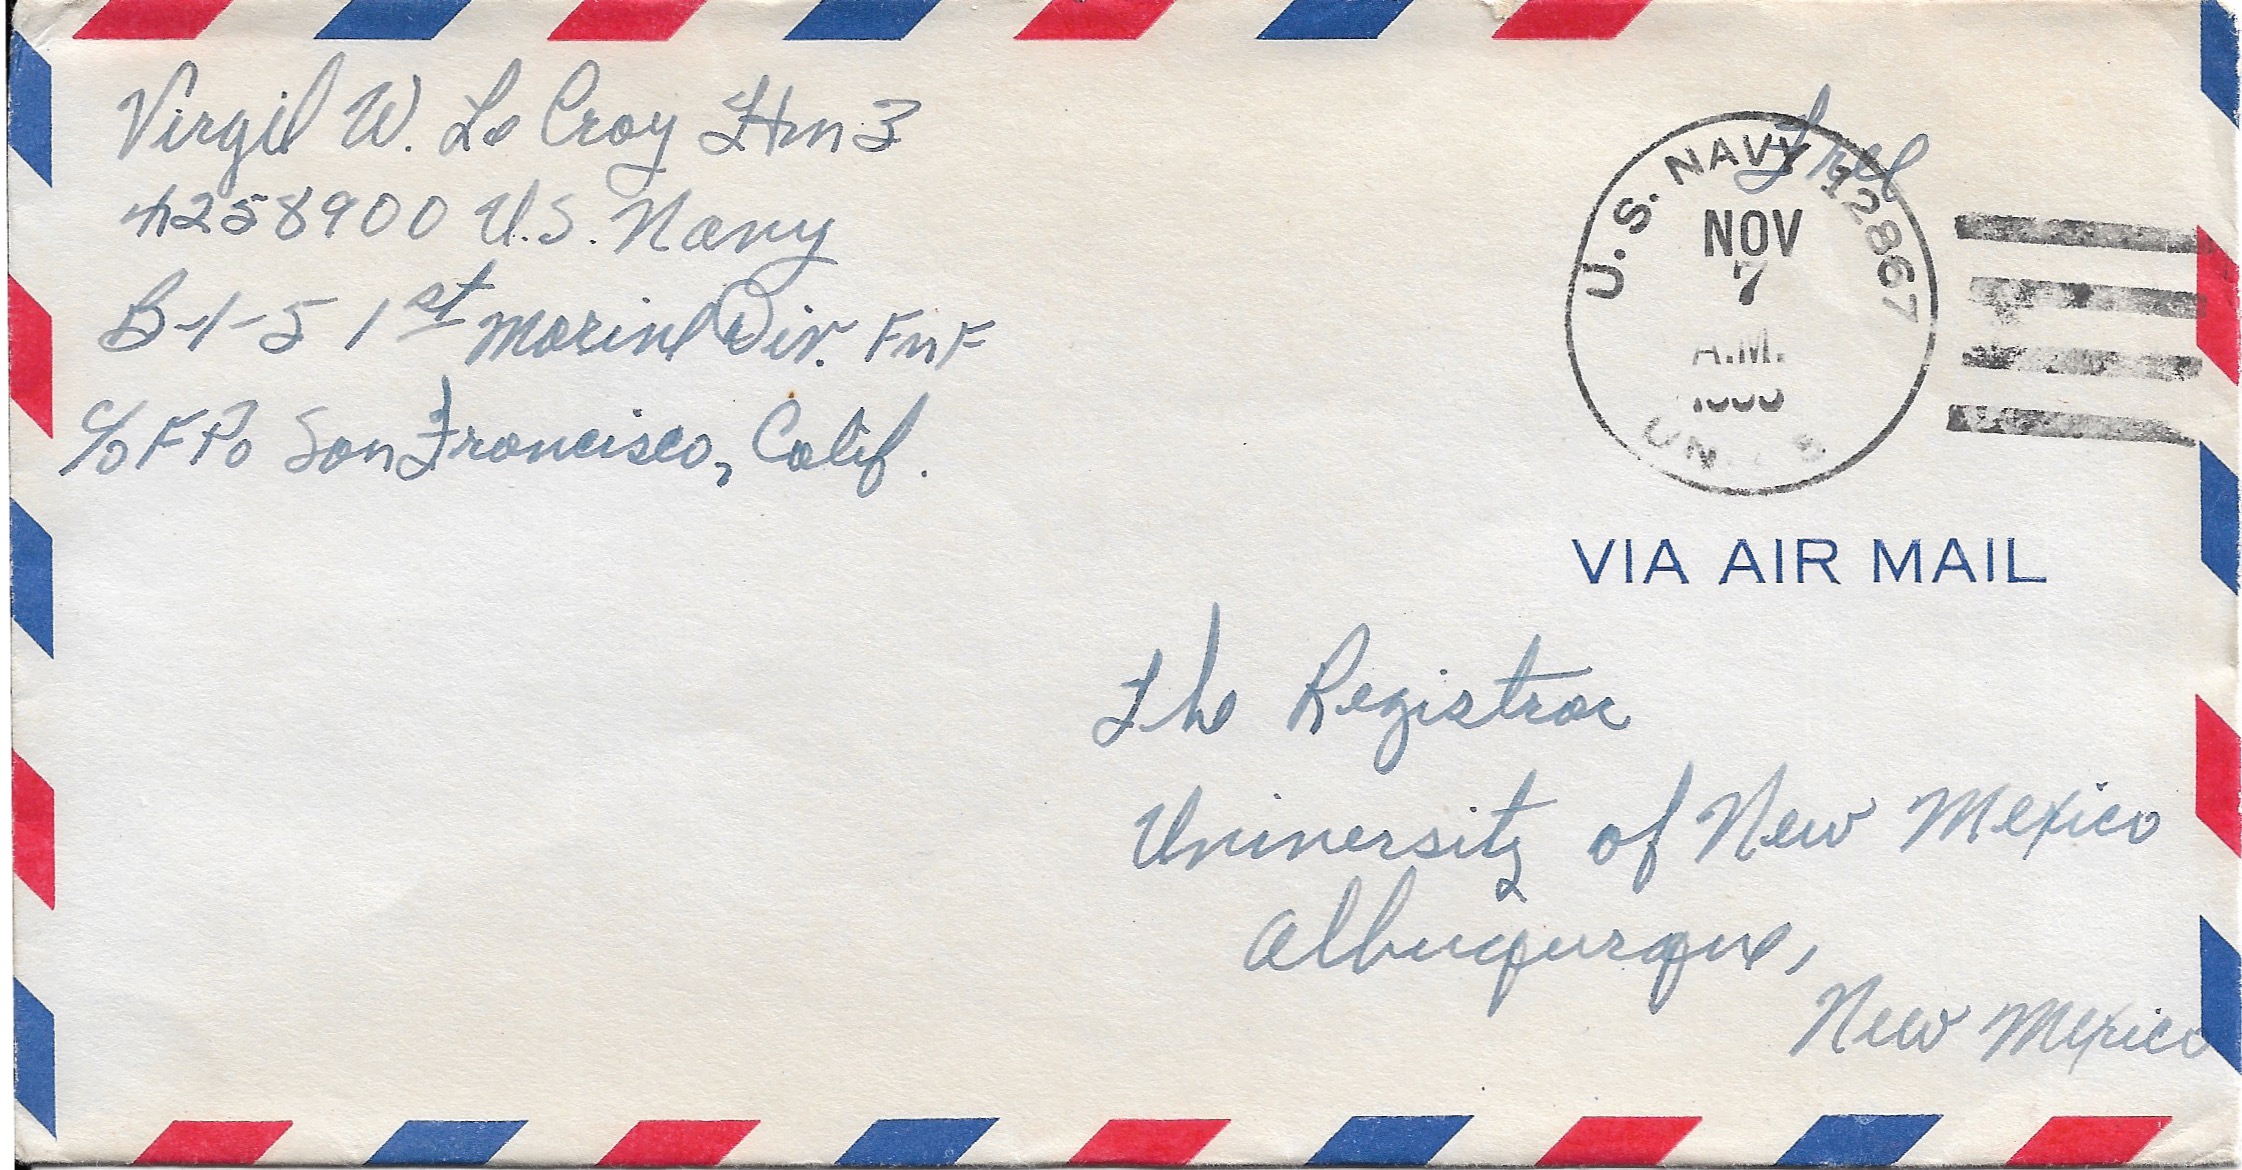 Virgil W. Le Croy Hm3
4258900 U.S. Navy
B-1-5 1st Marine Div. FMF
c/o FPO San Francisco, Calif.
Free
U.S. NAVY 12867
NOV
7
A.M.
VIA AIR MAIL
The Registrar
University of New Mexico
Albuqurque,
New Mexico